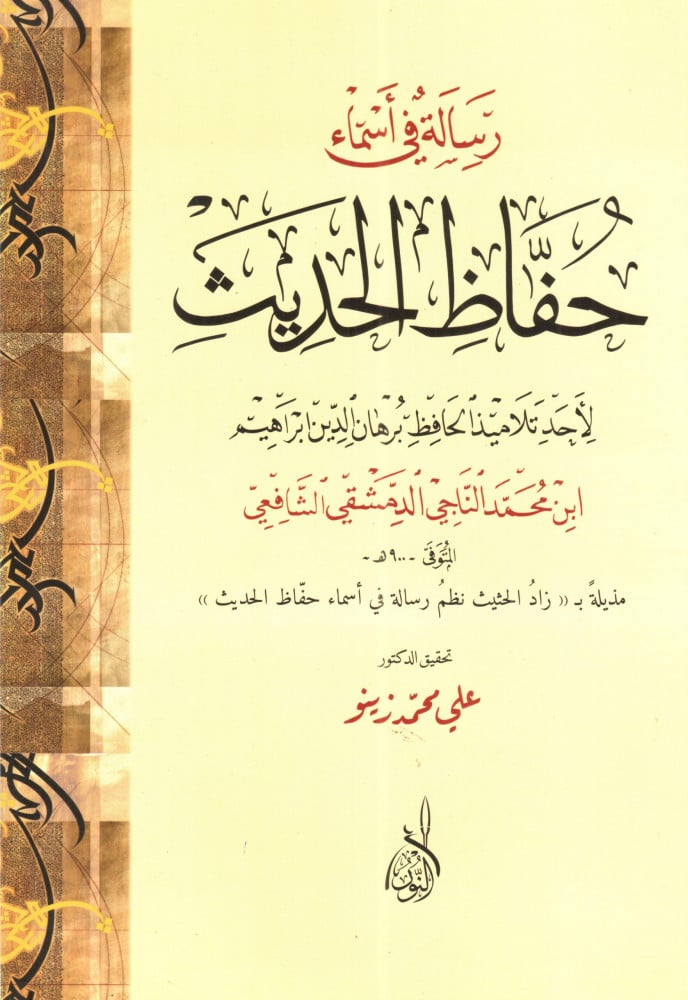 رِسَالَةٌ فِي أَسْمَاء
حُفَّاظِ الحَدِيثِ
لِأَحَدِ تَلَامِيذِ الحَافِظِ بُرْهَانِ الدِّينِ ابْرَاهِيم
ابْنِ مُحَمَّد النَّاجِي الدِّمَشْقِي الشَّافِعِي
المُتَوَفَّى - ٩٠٠هـ -
مذيلةً بـ (( زادُ الحثيث نظمُ رسالة في أسماء حفّاظ الحديث ))
تحقيق الدكتور
علي محمّد زينو
النُّور